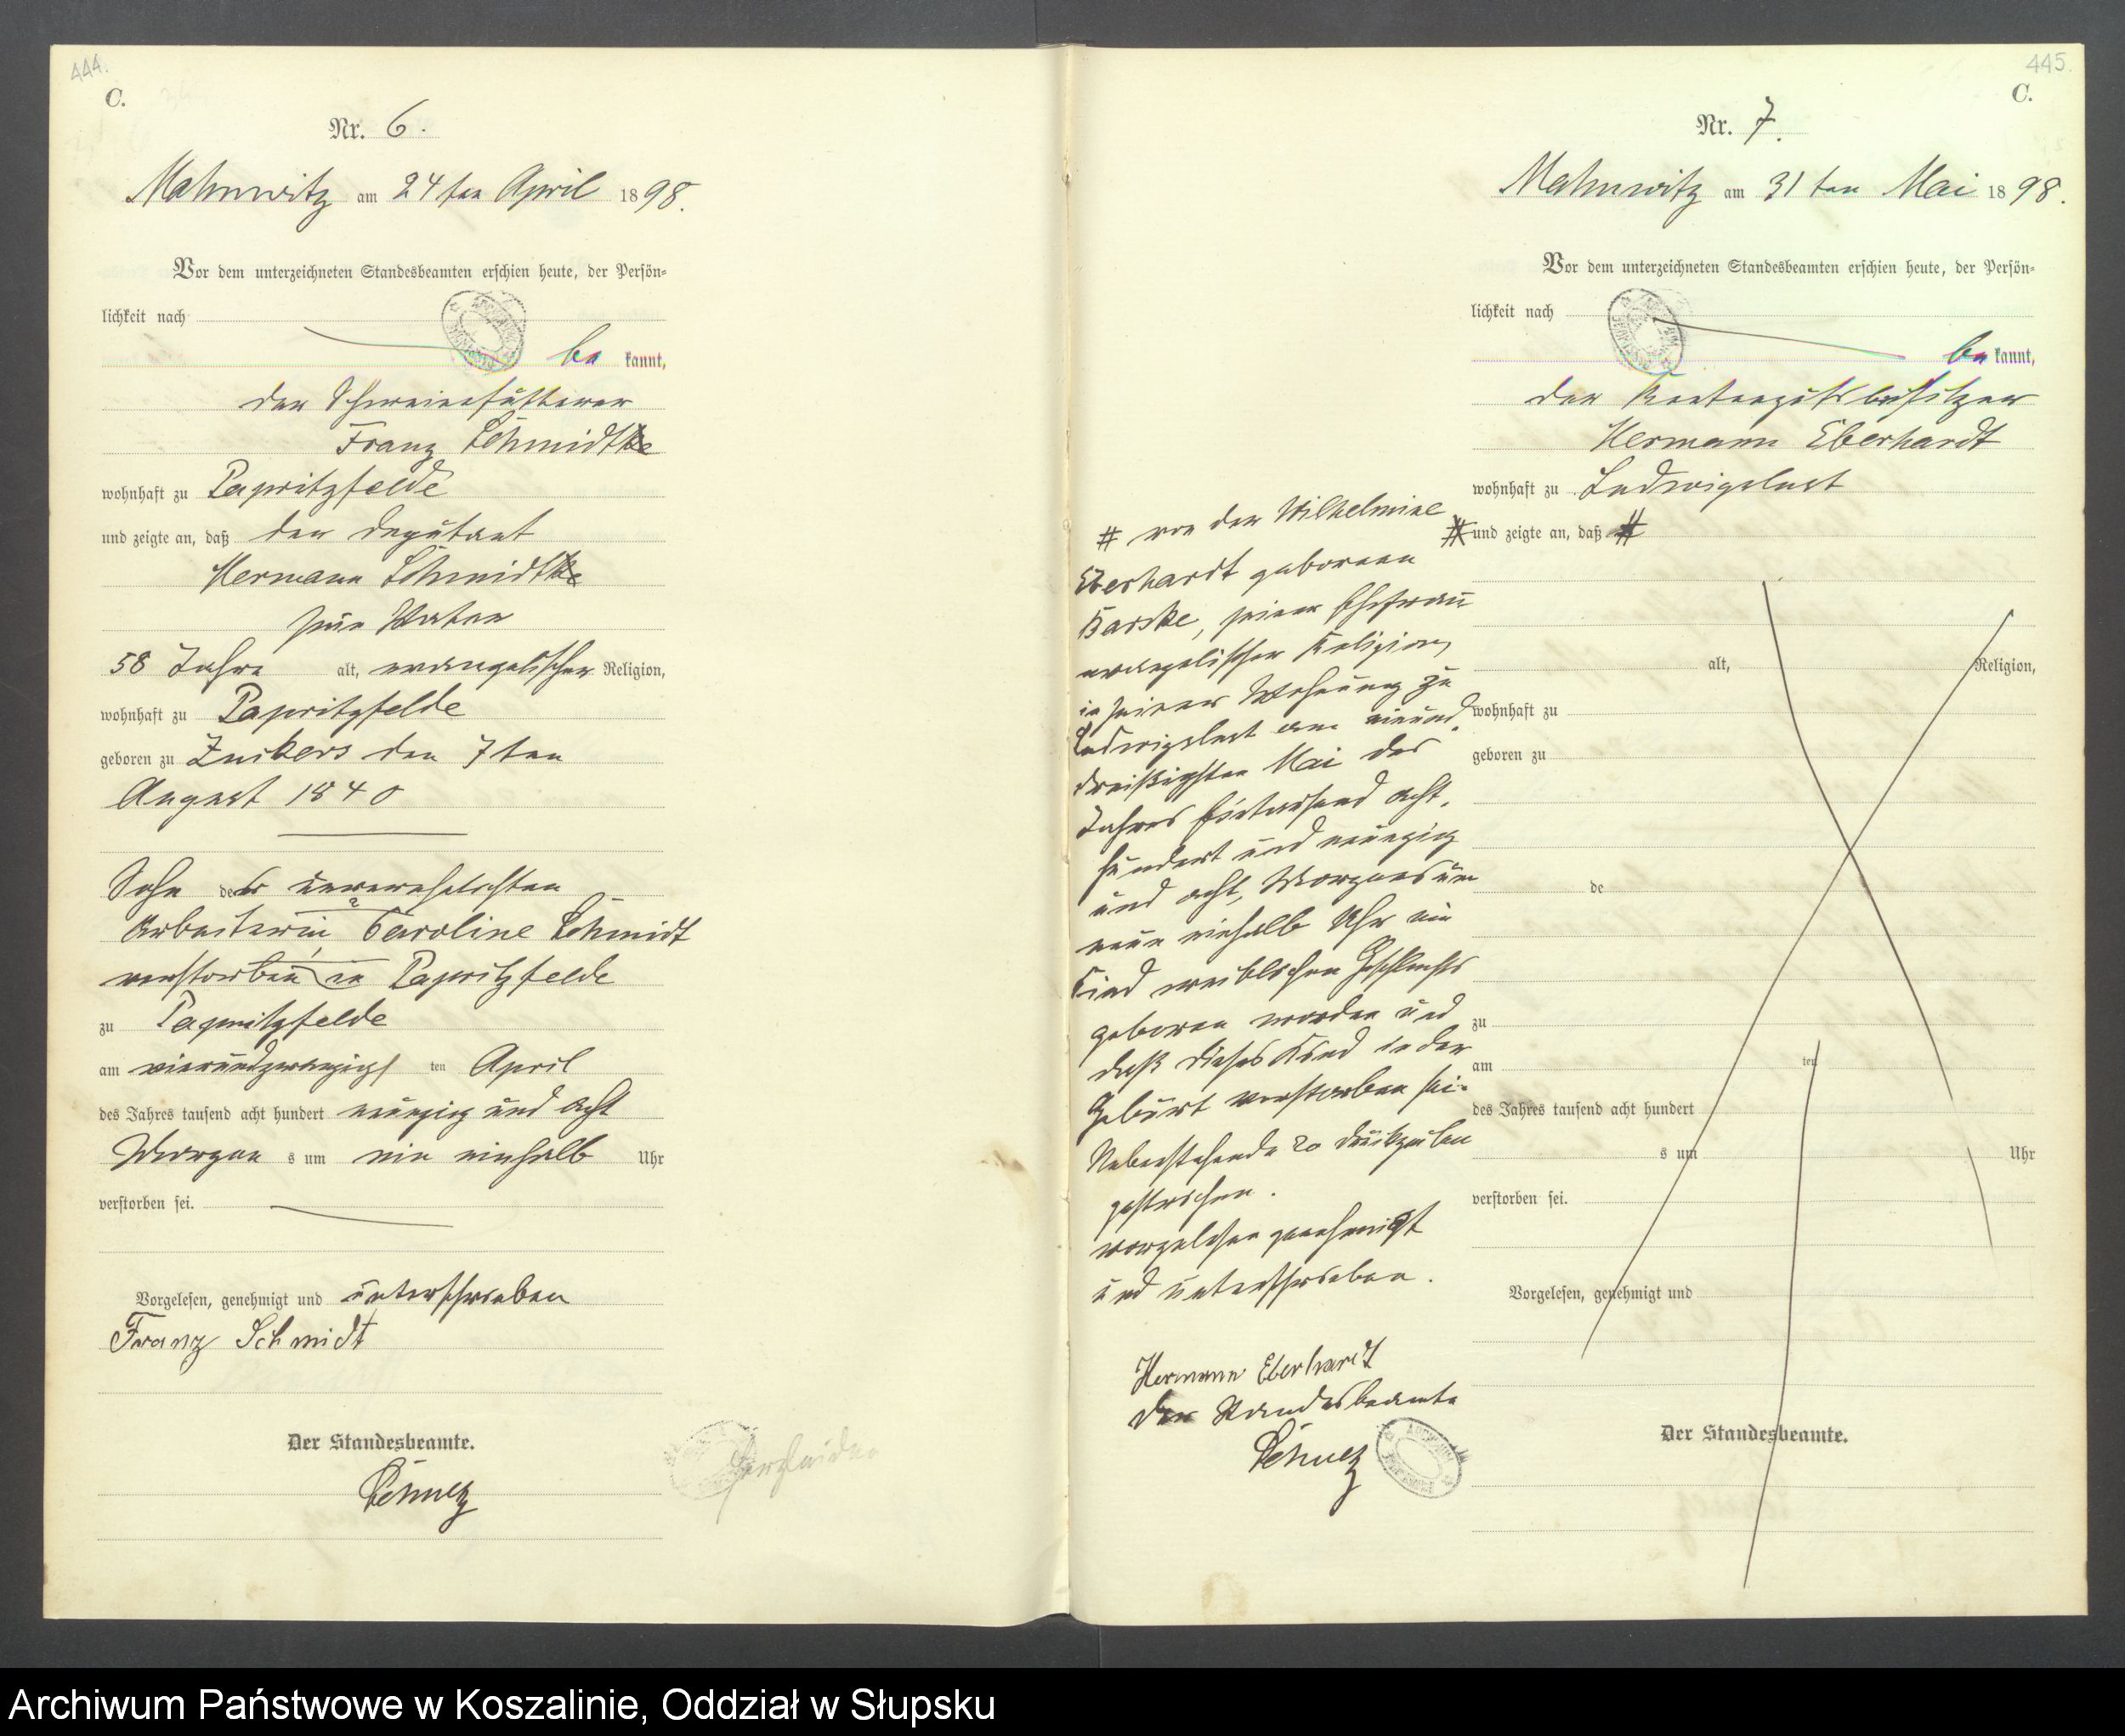 444.
C.
Nr. 6.
Mahnwitz am 24ten April 1898.
Vor dem unterzeichneten Standesbeamten erschien heute, der Persön-
lichkeit nach
be kannt,
der Schweinefütterer
Franz Schmidtke
wohnhaft zu Papritzfelde
und zeigte an, daß der Deputant
Hermann Schmidtke
sein Vater
58 Jahre alt, evangelischer Religion,
wohnhaft zu Papritzfelde
geboren zu Zuckers den 7ten
August 1840
Sohn der unverehelichten
Arbeiterin Caroline Schmidt
verstorben in Papritzfelde
zu Papritzfelde
am vierundzwanzigs ten April
des Jahres tausend acht hundert neunzig und acht
Morgen s um ein einhalb Uhr
verstorben sei.
Vorgelesen, genehmigt und unterschrieben
Franz Schmidt
Der Standesbeamte.
Schulz
445.
C.
Nr. 7.
Mahnwitz am 31ten Mai 1898.
Vor dem unterzeichneten Standesbeamten erschien heute, der Persön-
lichkeit nach
be kannt,
der Rentengutsbesitzer
Hermann Eberhardt
wohnhaft zu Ludwigslust
und zeigte an, daß #
alt, Religion,
wohnhaft zu
geboren zu
de
zu
am ten
des Jahres tausend acht hundert
s um Uhr
verstorben sei.
Vorgelesen, genehmigt und
Der Standesbeamte.
# von der Wilhelmine
Eberhardt geborenen
Barske, seiner Ehefrau
evangelischer Religion,
in seiner Wohnung zu
Ludwigslust am einund
dreißigsten Mai des
Jahres Eintausend acht
hundert und neunzig
und acht, Morgens um
neun einhalb Uhr ein
Kind weiblichen Geschlechts
geboren worden und
daß dieses Kind in der
Geburt verstorben sei.
Nebenstehende 20 Druckzeilen
gestrichen.
vorgelesen genehmigt
und unterschrieben.
Hermann Eberhardt
Der Standesbeamte
Schulz
Archiwum Państwowe w Koszalinie, Oddział w Słupsku